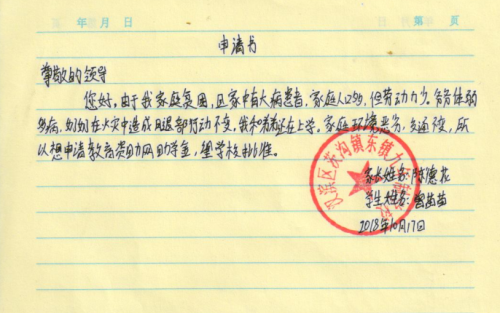 年 月 日 第 页
申请书
尊敬的领导
您好,由于我家庭贫困,区家中有大病患者,家庭人口多,但劳动力少。爷爷体弱
多病,奶奶在火灾中造成腿部行动不变,我和 还在上学。家庭环境恶劣,交通不变,所
以想申请教育资助网助学金,望学校批准。
家长姓名:陈德花
学生姓名:曾苗苗
2018年10月17日
汉滨区茨沟镇东镇